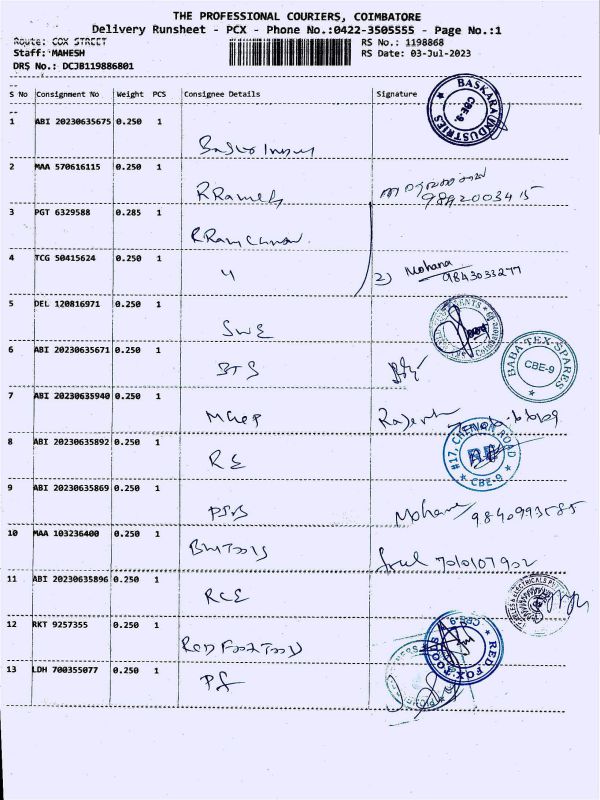 THE PROFESSIONAL COURIERS, COIMBATORE
Delivery Runsheet - PCX - Phone No.:0422-3505555 - Page No.:1
Route: COX STREET
RS No.: 1198868
Staff: MAHESH
RS Date: 03-Jul-2023
DRS No.: DCJB119886801
S No Consignment No Weight PCS Consignee Details Signature
BASKARA INDUSTRIES CBE-9.
1 ABI 20230635675 0.250 1
2 MAA 570616115 0.250 1 R Ramesh
9892003415
3 PGT 6329588 0.285 1
4 TCG 50415624 0.250 1 4 2) Mohana
9843033277
5 DEL 120816971 1 SWE
6 ABI 20230635671 0.250 1 BTS
BABA-TEX-SPARES CBE-9
7 ABI 20230635940 0.250 1 Rajesh
8 ABI 20230635892 0.250 1 RE
#17, ROAD CBE-9
9 ABI 20230635869 0.250 1 Mohana 9840993585
10 MAA 103236400 0.250 1 BM Tools 7010107902
11 ABI 20230635896 0.250 1 RCE
12 RKT 9257355 0.250 1 RED FOX TOOLS
RED FOX TOOLS CBE-9
13 LDH 700355077 0.250 1 PS